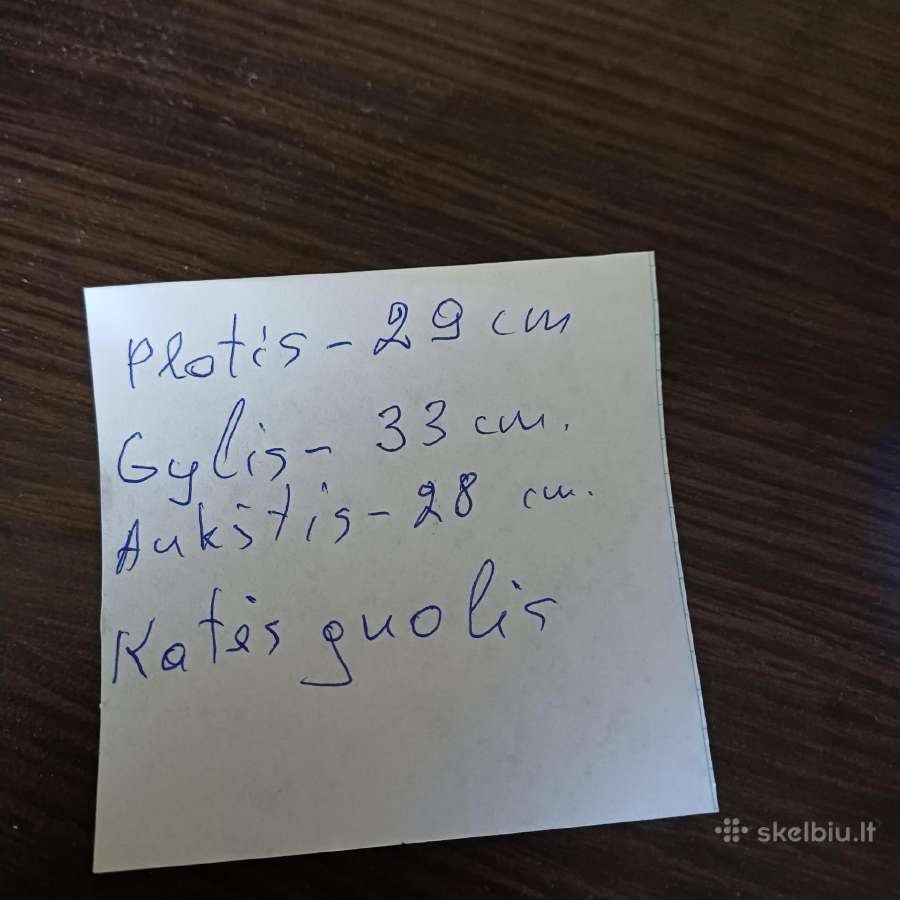 Plotis - 29 cm
Gylis - 33 cm.
Aukštis - 28 cm.
Katės guolis
skelbiu.lt